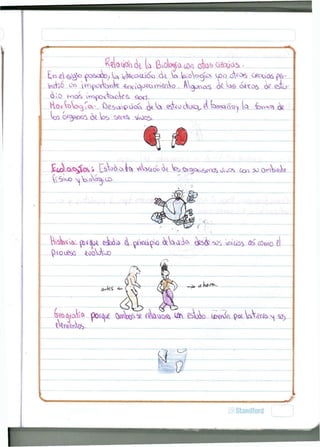 Relación de la Biología con otras ciencias.
En el siglo pasado, la interacción de la biología con otras ciencias per-
mitió un importante enriquecimiento. Algunas de las áreas de estu-
dio más importantes son:
Morfología: Descripción de la estructura, el tamaño y la forma de
los órganos de los seres vivos.
Ecología: Estudia la relación de los organismos vivos con su ambiente
físico y biológico
Historia: porque estudia el principio de la vida desde sus inicios así como el
proceso evolutivo
antes
ahora
Geografía porque ambos se relaciona un estudo por la tierra y sus
elementos.
Standford